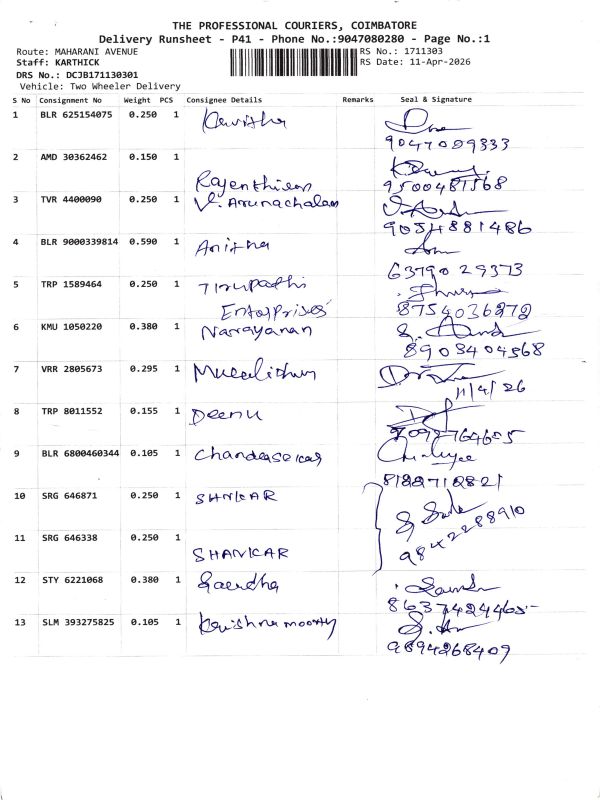 THE PROFESSIONAL COURIERS, COIMBATORE
Delivery Runsheet - P41 - Phone No.:9047080280 - Page No.:1
Route: MAHARANI AVENUE RS No.: 1711303
Staff: KARTHICK RS Date: 11-Apr-2026
DRS No.: DCJB171130301
Vehicle: Two Wheeler Delivery
S No Consignment No Weight PCS Consignee Details Remarks Seal & Signature
1 BLR 625154075 0.250 1 Kavitha
9047099333
2 AMD 30362462 0.150 1
Rajenthiran 9500481568
3 TVR 4400090 0.250 1 V. Arunachalam
9034881486
4 BLR 9000339814 0.590 1 Anitha
6379029373
5 TRP 1589464 0.250 1 Tirupathi
Enterprises 8754036272
6 KMU 1050220 0.380 1 Narayanan
8903404568
7 VRR 2805673 0.295 1
11/4/26
8 TRP 8011552 0.155 1 Deenu
9 BLR 6800460344 0.105 1 Chandrasekar
8188712821
10 SRG 646871 0.250 1 SHNKAR
9842288910
11 SRG 646338 0.250 1
SHANKAR
12 STY 6221068 0.380 1
8637424465
13 SLM 393275825 0.105 1 Krishnamoorthy
9894268409